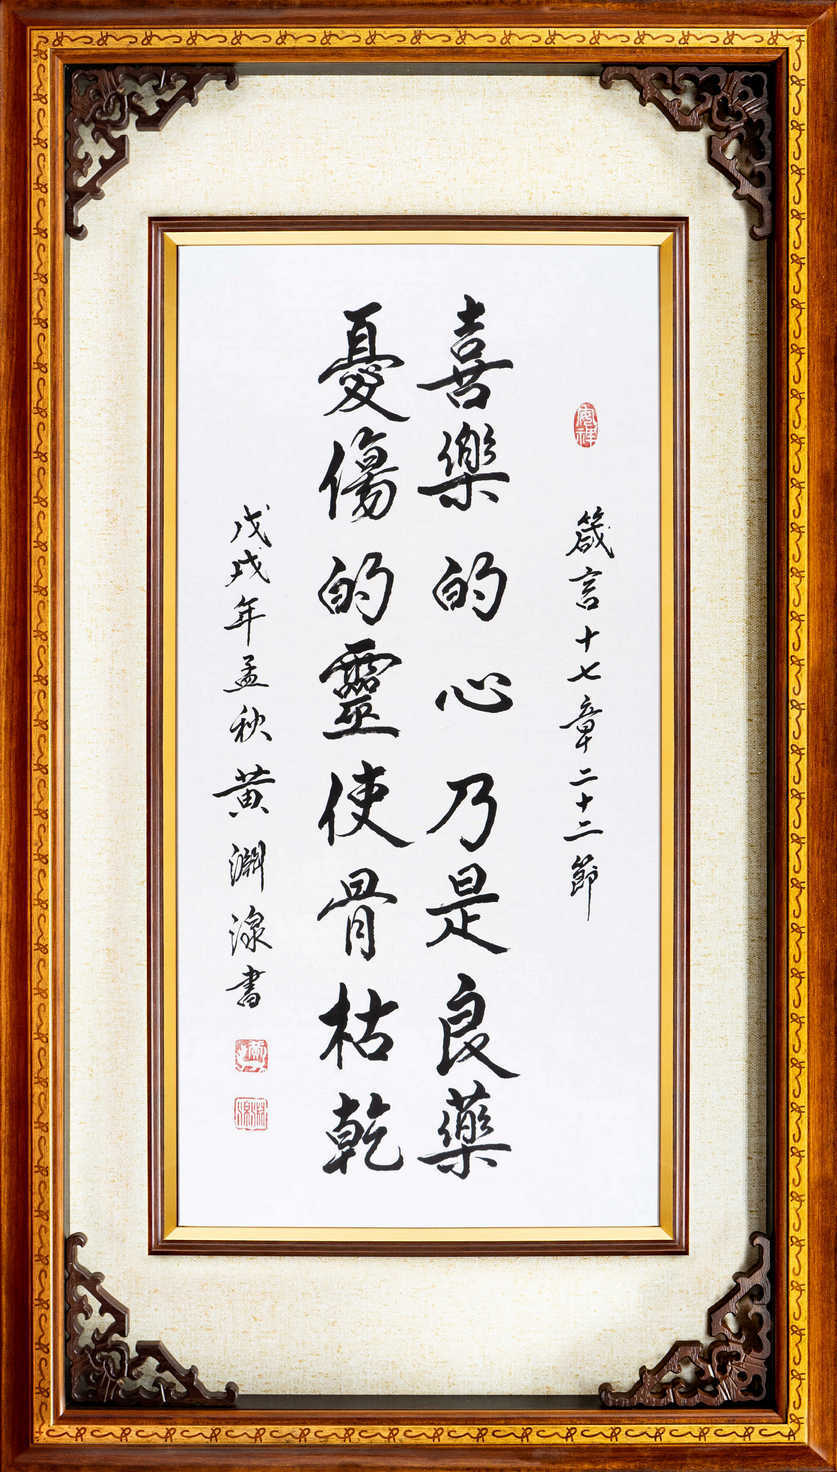 箴言十七章二十二節
喜樂的心乃是良藥
憂傷的靈使骨枯乾
戊戌年孟秋黃淵湶書